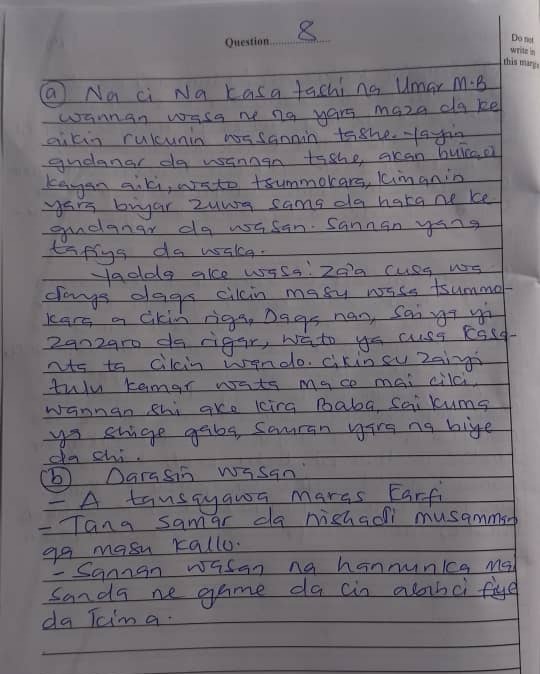 Question 8
Do not
write in
this margin
(a) Na ci Na kasa tashi na Umar M.B
wannan wasa ne na yara maza da ke
aikin rukunin wasannin tashe. Yayin
gudanar da wannan tashe, akan buƙaci
kayan aiki, wato tsummokara, kimanin
yara biyar zuwa sama da haka ne ke
gudanar da wasan. Sannan yana
tafiya da waka.
Yadda ake wasa: Za'a cusa wa
ɗanya daga cikin masu wasa tsummo-
kara a cikin riga, Daga nan, sai ya yi
zanzaro da rigar, wato ya cusa Kasa-
nta ta cikin wando. cikin su zaiyi
tulu kamar wata mace mai ciki,
wannan shi ake kira Baba, sai kuma
ya shige gaba, sauran yara na biye
da shi.
(b) Darasin wasan
- A tausayawa maras Karfi
- Tana samar da nishaɗi musamman
ga masu kallo.
- Sannan wasan na hannunka mai
sanda ne game da cin abinci fiye
da Kima.